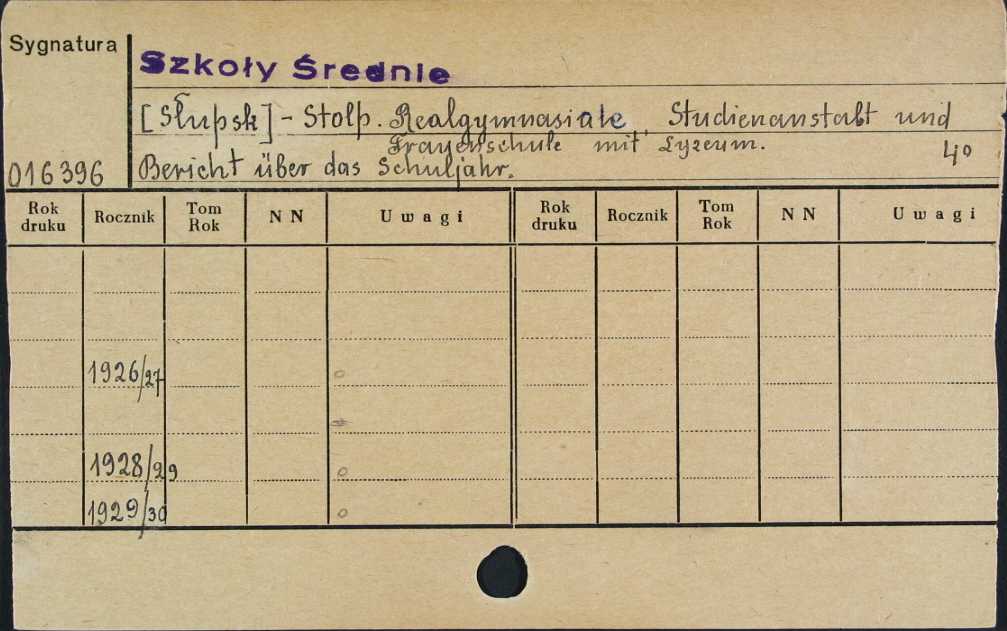 Sygnatura
Szkoły Średnie
[Słupsk] - Stolp. Realgymnasiale Studienanstalt und
Frauenschule mit Lyzeum.
016396 Bericht über das Schuljahr. 4o
Rok druku Rocznik Tom Rok NN Uwagi Rok druku Rocznik Tom Rok NN Uwagi
1926/27 o
1928/29 o
1929/30 o